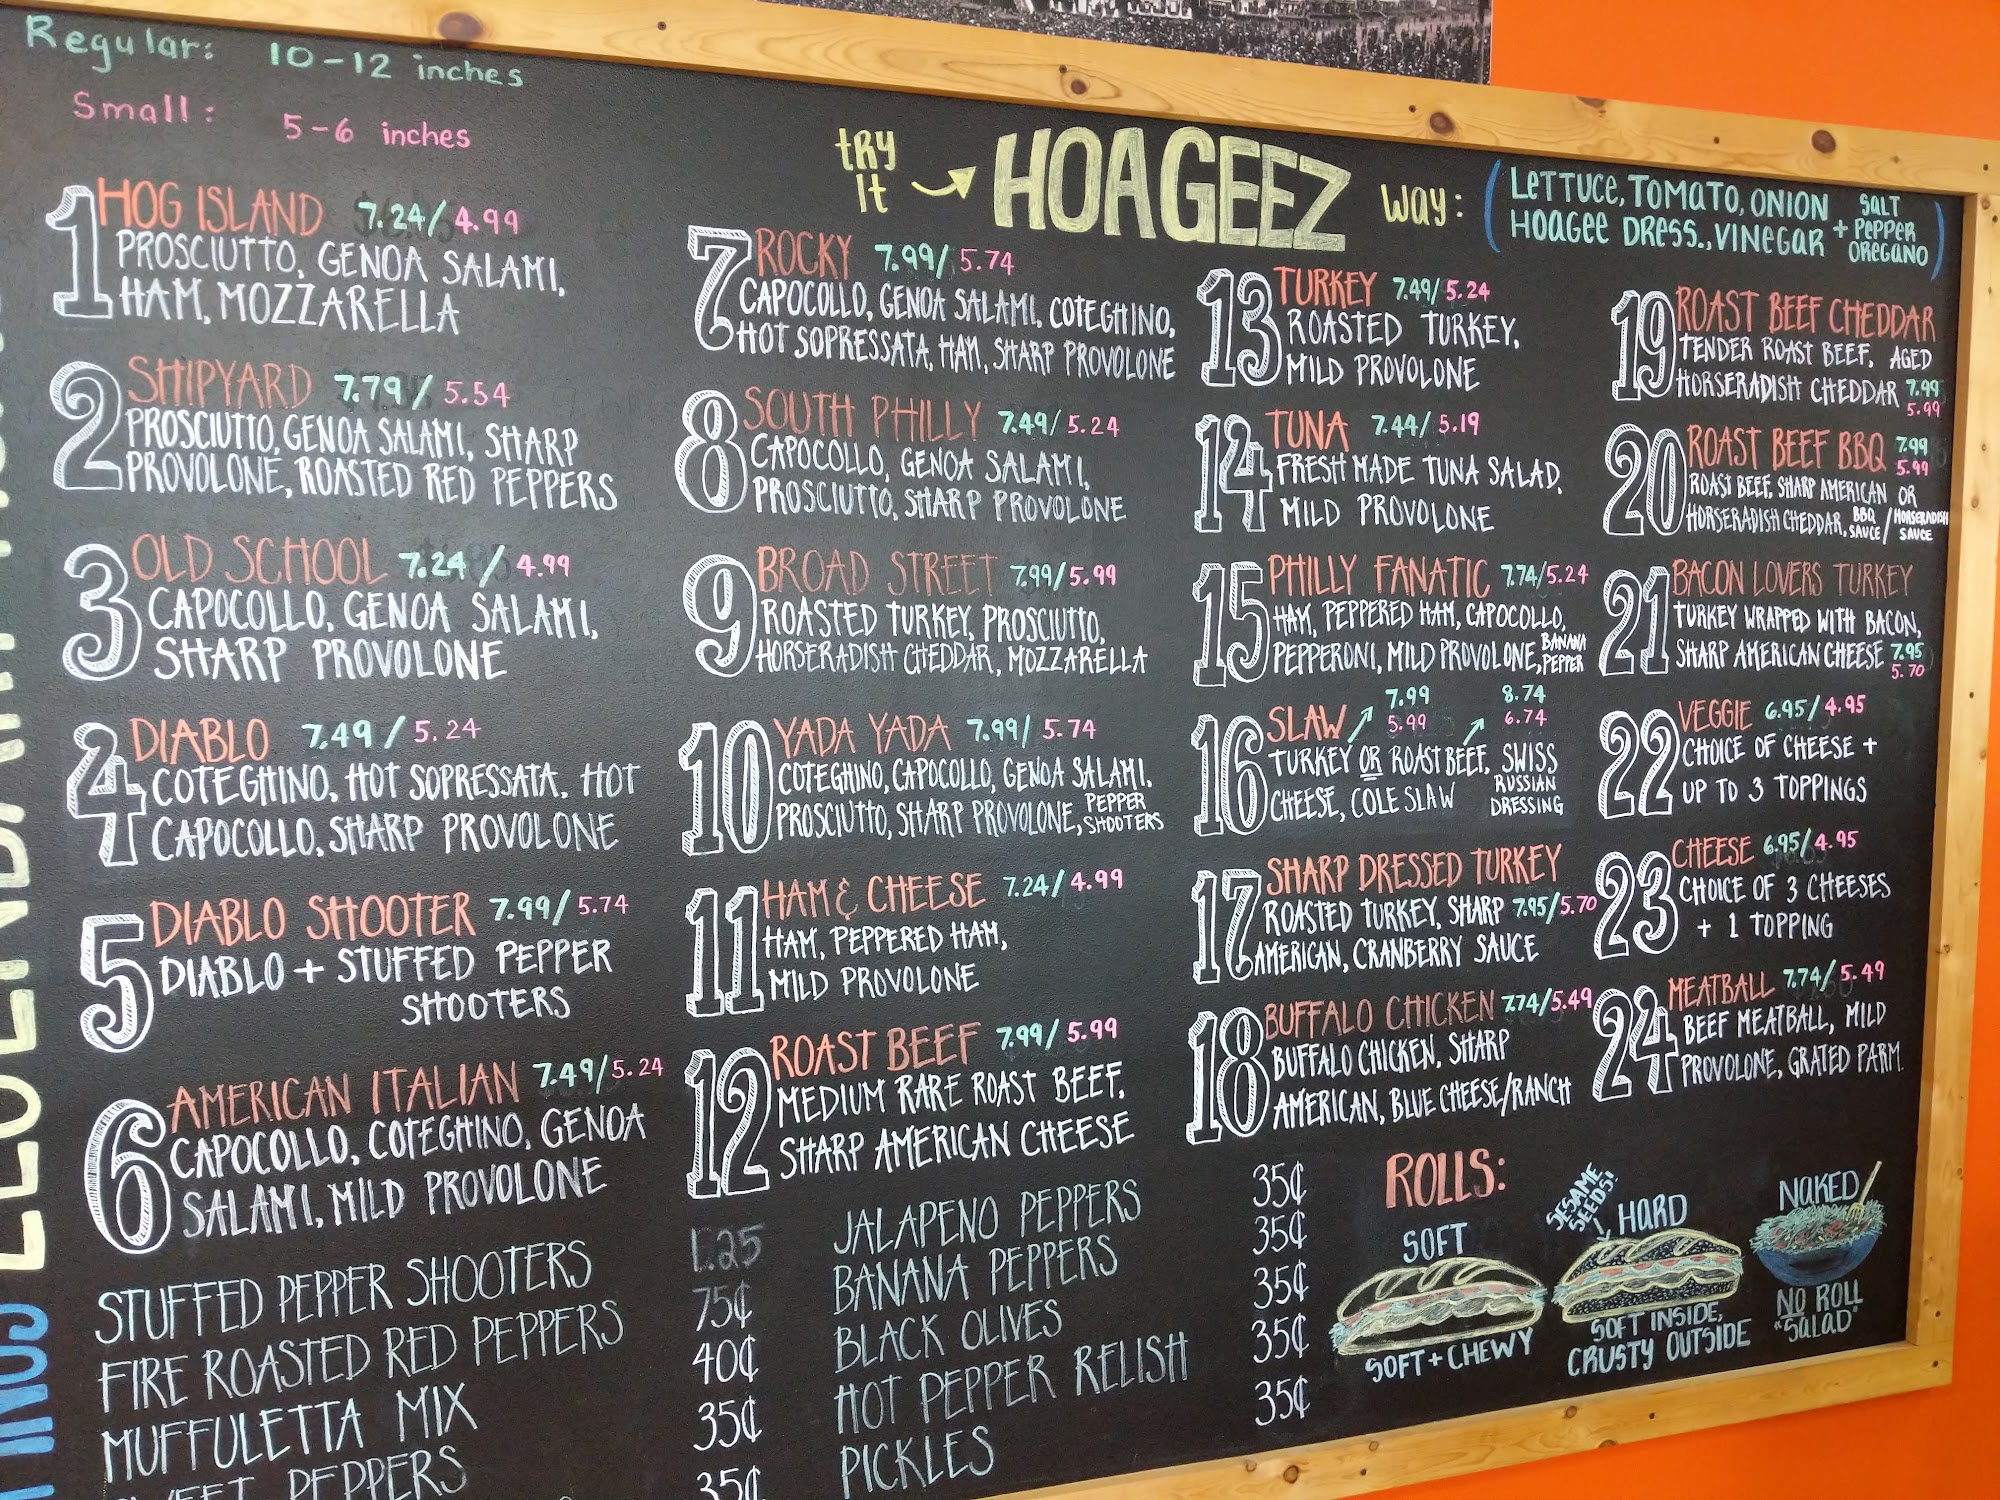 Regular: 10-12 inches
Small: 5-6 inches
try it → HOAGEEZ way: (LETTUCE, TOMATO, ONION + SALT PEPPER OREGANO
HOAGEE DRESS., VINEGAR)
1 HOG ISLAND 7.24/4.99
PROSCIUTTO, GENOA SALAMI,
HAM, MOZZARELLA
2 SHIPYARD 7.79/5.54
PROSCIUTTO, GENOA SALAMI, SHARP
PROVOLONE, ROASTED RED PEPPERS
3 OLD SCHOOL 7.24/4.99
CAPOCOLLO, GENOA SALAMI,
SHARP PROVOLONE
4 DIABLO 7.49/5.24
COTEGHINO, HOT SOPRESSATA, HOT
CAPOCOLLO, SHARP PROVOLONE
5 DIABLO SHOOTER 7.99/5.74
DIABLO + STUFFED PEPPER
SHOOTERS
6 AMERICAN ITALIAN 7.49/5.24
CAPOCOLLO, COTEGHINO, GENOA
SALAMI, MILD PROVOLONE
7 ROCKY 7.99/5.74
CAPOCOLLO, GENOA SALAMI, COTEGHINO,
HOT SOPRESSATA, HAM, SHARP PROVOLONE
8 SOUTH PHILLY 7.49/5.24
CAPOCOLLO, GENOA SALAMI,
PROSCIUTTO, SHARP PROVOLONE
9 BROAD STREET 7.99/5.99
ROASTED TURKEY, PROSCIUTTO,
HORSERADISH CHEDDAR, MOZZARELLA
10 YADA YADA 7.99/5.74
COTEGHINO, CAPOCOLLO, GENOA SALAMI,
PROSCIUTTO, SHARP PROVOLONE, PEPPER SHOOTERS
11 HAM & CHEESE 7.24/4.99
HAM, PEPPERED HAM,
MILD PROVOLONE
12 ROAST BEEF 7.99/5.99
MEDIUM RARE ROAST BEEF,
SHARP AMERICAN CHEESE
13 TURKEY 7.49/5.24
ROASTED TURKEY,
MILD PROVOLONE
14 TUNA 7.44/5.19
FRESH MADE TUNA SALAD,
MILD PROVOLONE
15 PHILLY FANATIC 7.74/5.24
HAM, PEPPERED HAM, CAPOCOLLO,
PEPPERONI, MILD PROVOLONE, BANANA PEPPER
7.99 8.74
16 SLAW 5.99 6.74
TURKEY OR ROAST BEEF, SWISS
CHEESE, COLE SLAW RUSSIAN DRESSING
17 SHARP DRESSED TURKEY
ROASTED TURKEY, SHARP 7.95/5.70
AMERICAN, CRANBERRY SAUCE
18 BUFFALO CHICKEN 7.74/5.49
BUFFALO CHICKEN, SHARP
AMERICAN, BLUE CHEESE/RANCH
19 ROAST BEEF CHEDDAR
TENDER ROAST BEEF, AGED
HORSERADISH CHEDDAR 7.99
5.99
20 ROAST BEEF BBQ 7.99
5.99
ROAST BEEF, SHARP AMERICAN OR
HORSERADISH CHEDDAR, BBQ SAUCE / HORSERADISH SAUCE
21 BACON LOVERS TURKEY
TURKEY WRAPPED WITH BACON,
SHARP AMERICAN CHEESE 7.95
5.70
22 VEGGIE 6.95/4.95
CHOICE OF CHEESE +
UP TO 3 TOPPINGS
23 CHEESE 6.95/4.95
CHOICE OF 3 CHEESES
+ 1 TOPPING
24 MEATBALL 7.74/5.49
BEEF MEATBALL, MILD
PROVOLONE, GRATED PARM.
STUFFED PEPPER SHOOTERS 1.25
FIRE ROASTED RED PEPPERS 75¢
MUFFULETTA MIX 40¢
SWEET PEPPERS 35¢
35¢
JALAPENO PEPPERS 35¢
BANANA PEPPERS 35¢
BLACK OLIVES 35¢
HOT PEPPER RELISH 35¢
PICKLES 35¢
ROLLS:
SOFT
SOFT + CHEWY
SESAME SEEDS!
HARD
SOFT INSIDE,
CRUSTY OUTSIDE
NAKED
NO ROLL
"SALAD"